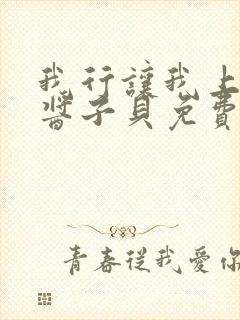 我行讓我上
醬子貝免費
青春從我愛你